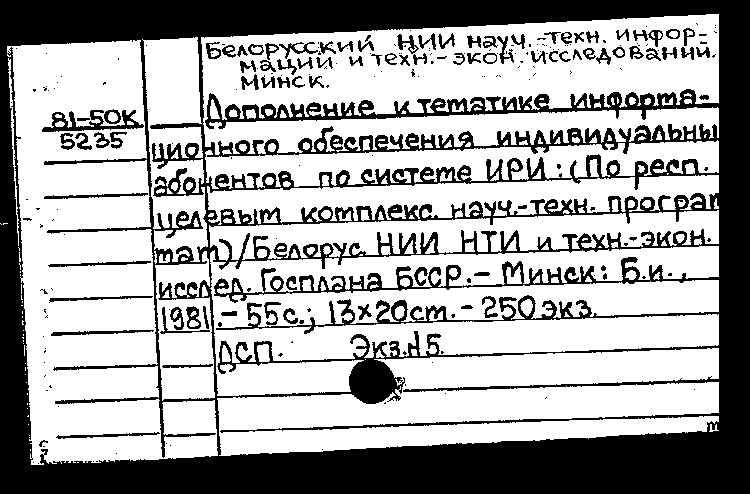 Белорусский НИИ науч.-техн. инфор-
мации и техн.-экон. исследований.
Минск.
81-50К
5235
Дополнение к тематике информа-
ционного обеспечения индивидуальны
абонентов по системе ИРИ: (По респ.
целевым комплекс. науч.-техн. програм
мам) / Белорус. НИИ НТИ и техн.-экон.
исслед. Госплана БССР. - Минск: Б.и.,
1981. - 55 с.; 13×20см. - 250 экз.
ДСП. Экз. №5.